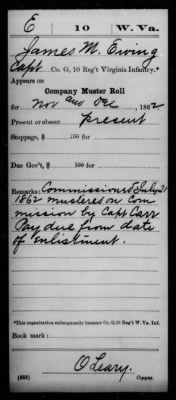 E 10 W. Va.
James M. Ewing
Capt Co. G, 10 Reg't Virginia Infantry.*
Appears on
Company Muster Roll
for Nov and Dec, 1862
Present or absent present
Stoppage, $ 100 for
Due Gov't, $ 100 for
Remarks: Commissioned July 21
1862 mustered on Com
mission by Capt Carr
Pay due from date
of Enlistment.
*This organization subsequently became Co. G, 10 Reg't W. Va. Inf.
Book mark:
O'Leary.
(358) Copyist.